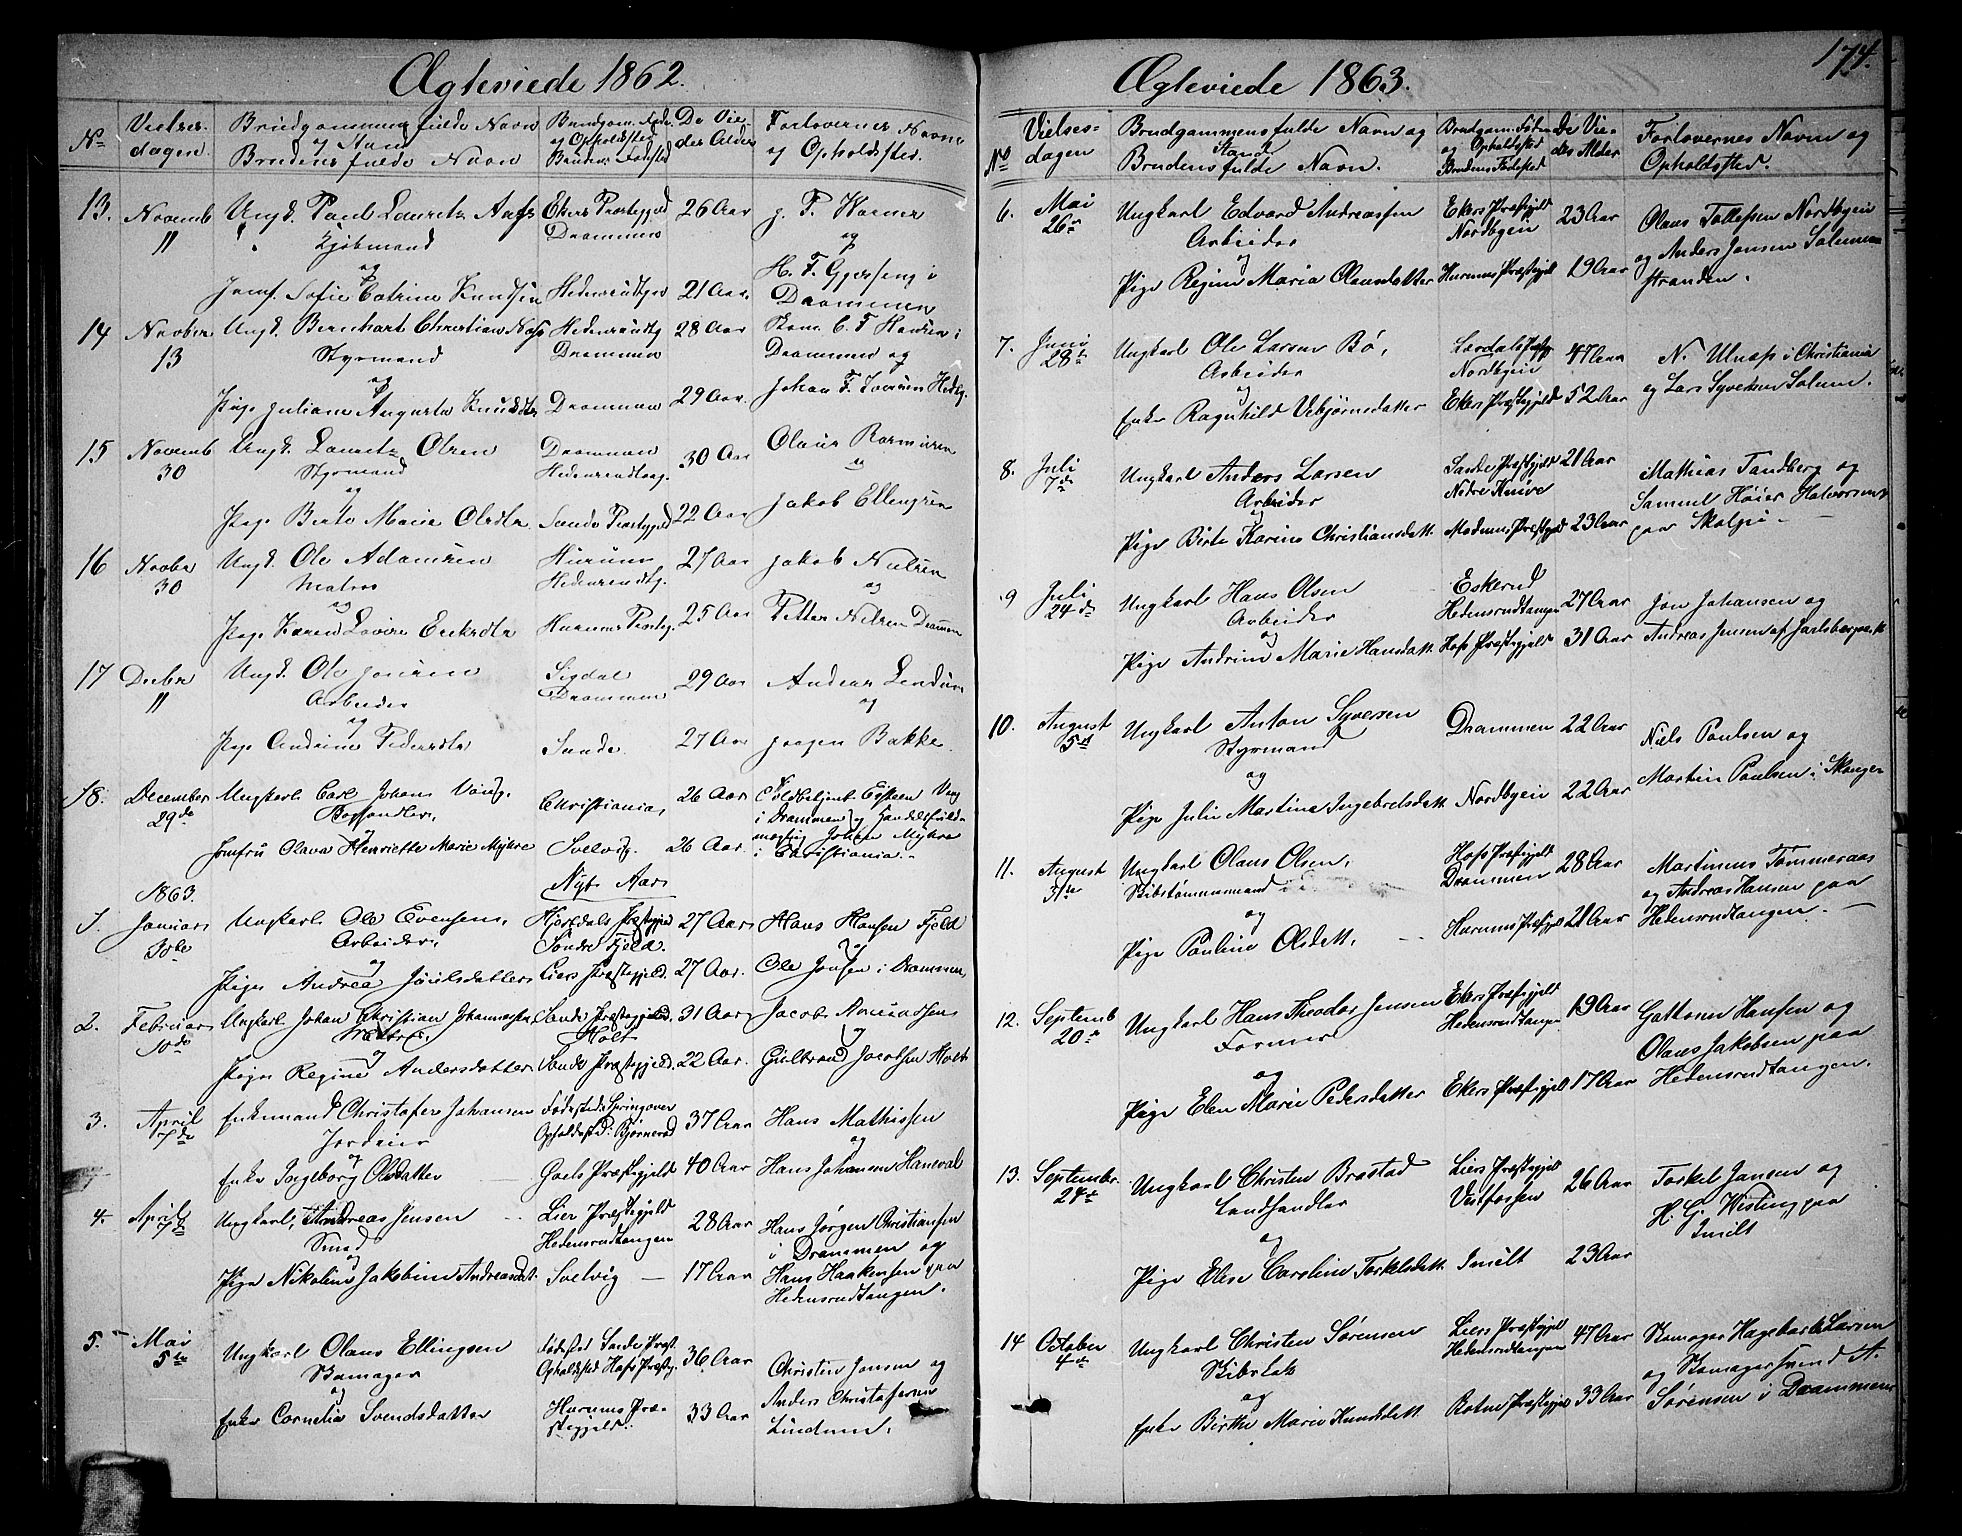 Ægteviede 1862.
No
Vielses-
dagen.
Brudgommens fulde Navn
og Stand
Brudens fulde Navn
Brudgom. Føde
og Opholdssted
Brudens Fødested
De Vie-
des Alder
Forlovernes Navne
og Opholdssted.
13. Novemb 11 Ungk. Paul Lauritz Aass Ekers Præstegjeld 26 Aar
Kjøbmand Drammen
og
Jomf. Sofie Catrine Knudsen Hedensrudtgen 21 Aar.
og
H. F. Gjerseng i
Drammen
14 Novber 13 Ungk. Bernhart Christian Næss Hedensrudtg 28 Aar C. F. Hansen i
Styrmand Drammen Drammen og
og
Pige Juliane Augusta Knudsdtr Drammen 29 Aar. Johan F. Iversen Hedtg.
15 Novemb 30 Ungk. Lauritz Olsen Drammen 30 Aar Olaus Rasmusen
Styrmand Hedensrudtag. og
og
Pige Berte Marie Olsdtr Sande Præstegjeld 22 Aar Jakob Ellengsen
16 Novbr 30 Ungk. Ole Adamsen Hurum 27 Aar Jakob Nielsen
Matros Hedensrudtg. og
og
Pige Karen Lovise Eriksdtr Hurums Præsteg. 25 Aar Petter Nilsen Drammen
17 Decbr 11 Ungk. Ole Jonsen Sigdal 29 Aar Andreas Lindum
Arbeider Drammen og
og
Pige Andrine Pedersdtr Sande. 27 Aar Jørgen Bakke.
18. December 29de Ungkarl Carl Johan Christiania, 26 Aar
i Drammen og Handelsfuld-
mægtig Johan Myhre
Jomfru Olava Henriette Marie Myhre Svelvig. 26 Aar. i Christiania.
1863. Nyt Aar
1. Januar Ungkarl Ole Evensen, Præstegjeld 27 Aar Hans Hansen Fjeld
Arbeider, Søndre Fjeld. og
og
Pige Andrea Liers Præstegjeld. 27 Aar. Ole Jonsen i Drammen
2. Februar 10de Ungkarl Johan Christian Johannesen Sande Præstegjeld. 31 Aar Jacob
Matros. Holt og
og
Pige Regine Andersdatter Sande Præstegjeld. 22 Aar. Gulbrand Jacobsen Holt
3. April 7de Enkemand Christofer Johansen Fødested: Springover 37 Aar Hans Mathissen
Opholdssted: Bjørnerød og
og
Enke Ingeborg Olsdatter Præstegjeld 40 Aar Hans Johansen Haneval
4. April Ungkarl, Andreas Jensen Lier Præstegjeld 28 Aar Hans Jørgen Christiansen
Smed Hedensrudtangen i Drammen og
og
Pige Nikoline Jakobine Andreasdat. Svelvig — 17 Aar Hans Haakensen paa
Hedensrudtangen.
5. Mai 5te Ungkarl Olaus Ellingsen Fødested Sande Præst. 36 Aar
Skomager Opholdsted Hofs Præsteg. Christen Jensen og
og Anders Christofersen
Enke Cornelia Svendsdatter Hurums Præ- 33 Aar Lindum.
stegjeld.
174.
Ægteviede 1863.
No
Vielses-
dagen
Brudgommens fulde Navn og
Stand
Brudens fulde Navn.
Brudgom. Føde
og Opholdsted
Brudens Fødested
De Vie-
des Alder
Forlovernes Navn og
Opholdssted.
6. Mai 26de Ungkarl Edvard Andreassen Ekers Præstegjeld 23 Aar Olaus Tollefsen Nordbyen
Arbeider Nordbyen og Anders Jensen Solum
og
Pige Regine Maria Olausdatter Hurums Præstegjeld 19 Aar stranden.
7. Juni 28de Ungkarl Ole Larsen Bø, 47 Aar N. Ulnæs i Christiania
Arbeider Nordbyen
og og Lars Syversen Solum.
Enke Ragnhild Vebjørnsdatter Ekers Præstegjeld 52 Aar
8. Juli 7de Ungkarl Anders Larsen Sande Præstegjeld 21 Aar Mathias Tandberg og
Arbeider Nedre Knive Samuel Høier Halvorsen
og
Pige Birte Karine Christiansdatt. Modums Præstegjeld 23 Aar paa Skalpe
9 Juli 24de Ungkarl Hans Olsen Eskerud 27 Aar Jon Johansen og
Arbeider Hedensrudtangen
og
Pige Andrine Marie Hansdatt. Hofs Præstegjeld 31 Aar Andreas Jensen af Jarlsberg
10. August 5te Ungkarl Anton Syversen Drammen 22 Aar Niels Paulsen og
Styrmand
og
Pige Julie Martina Ingebretsdatt. Nordbyen 22 Aar Martin Paulsen i Skoger
11. August 31te Ungkarl Olaus Olsen, Hofs Præstegjeld 28 Aar Martinus Tømmeraas
Skibstømmermand Drammen og Andreas Hansen paa
og
Pige Pauline Olsdatt. Hurums Præstegjeld 21 Aar Hedensrudtangen.
12. Septemb 20de Ungkarl Hans Theodor Jensen Ekers Præstegjeld 19 Aar Gattorm Hansen og
Former Hedensrudtangen Olaus Jakobsen paa
og
Pige Elen Marie Pedersdatter Ekers Præstegjeld 17 Aar Hedensrudtangen.
13. Septembr. 24de Ungkarl Christen Brastad Liers Præstegjeld 26 Aar Torkel Jansen og
Landhandler Vestfossen H. G. Wisting paa
og Tmilt
Pige Elise Caroline Torkelsdatt. Tmilt 23 Aar
14 October 4de Ungkarl Christen Sørensen Liers Præstegjeld 47 Aar Skomager Hagebart Larsen
Hedensrudtangen
og og Skomager Svend A.
Enke Birthe Marie Knudsdatt. Præstegjeld 33 Aar Sørensen i Drammen